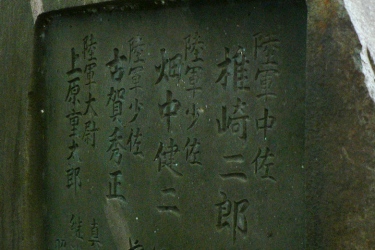 陸軍中佐
椎崎二郎
陸軍少佐
畑中健二
陸軍少佐
古賀秀正
陸軍大尉
上原重太郎